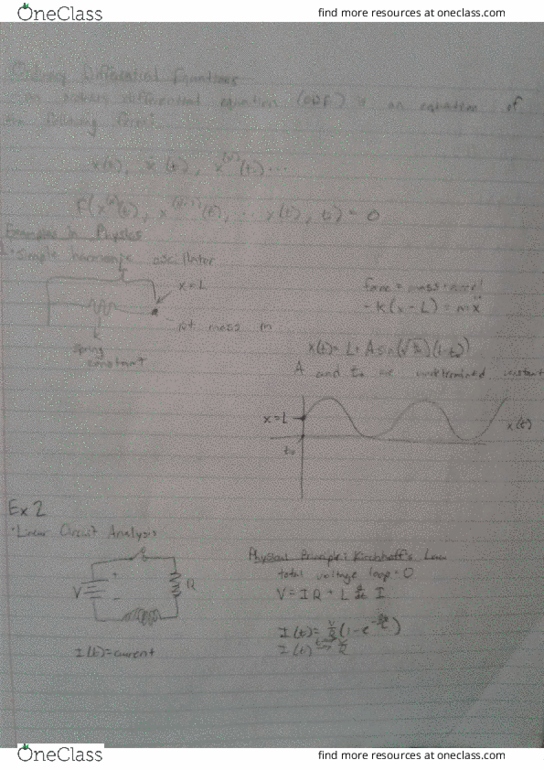 OneClass
find more resources at oneclass.com
Ordinary Differential Equations
an ordinary differential equation (ODE) is an equation of
the following form:
x(t), ẋ(t), x^(n)(t)...
F(x^(n)(t), x^(n-1)(t), ... x(t), t) = 0
Examples in Physics
1. Simple harmonic oscillator
x=L
pt. mass m
spring constant
force = mass · accel
-k(x-L) = mẍ
x(t) = L + A sin(√(k/m))(t-t₀)
A and t₀ are undetermined constant
x=L
t₀
x(t)
Ex 2
• Linear Circuit Analysis
V
+
-
R
I(t)=current
Physical Principle: Kirchhoff's Law
total voltage loop = 0
V = IR + L d/dt I
I(t) =
I(t)
OneClass
find more resources at oneclass.com